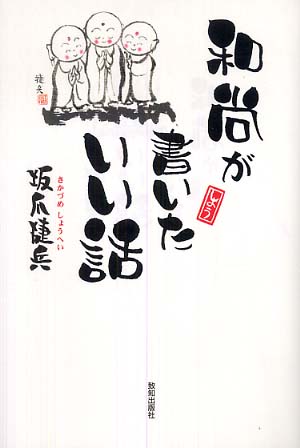 和尚が
書いた
しょう
いい話
坂爪捷兵
さかづめ しょうへい
捷兵
致知出版社